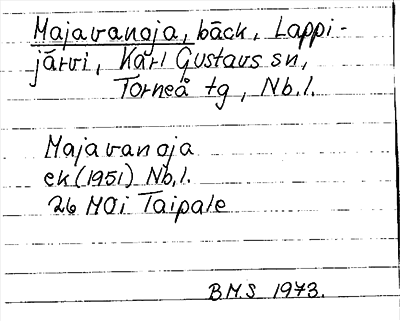 Majavanoja, bäck, Lappi-
järvi, Karl Gustavs sn,
Torneå tg, Nb.l.
Majavanoja
ek (1951) Nb.l.
26 M0i Taipale
B.M.S 1973.